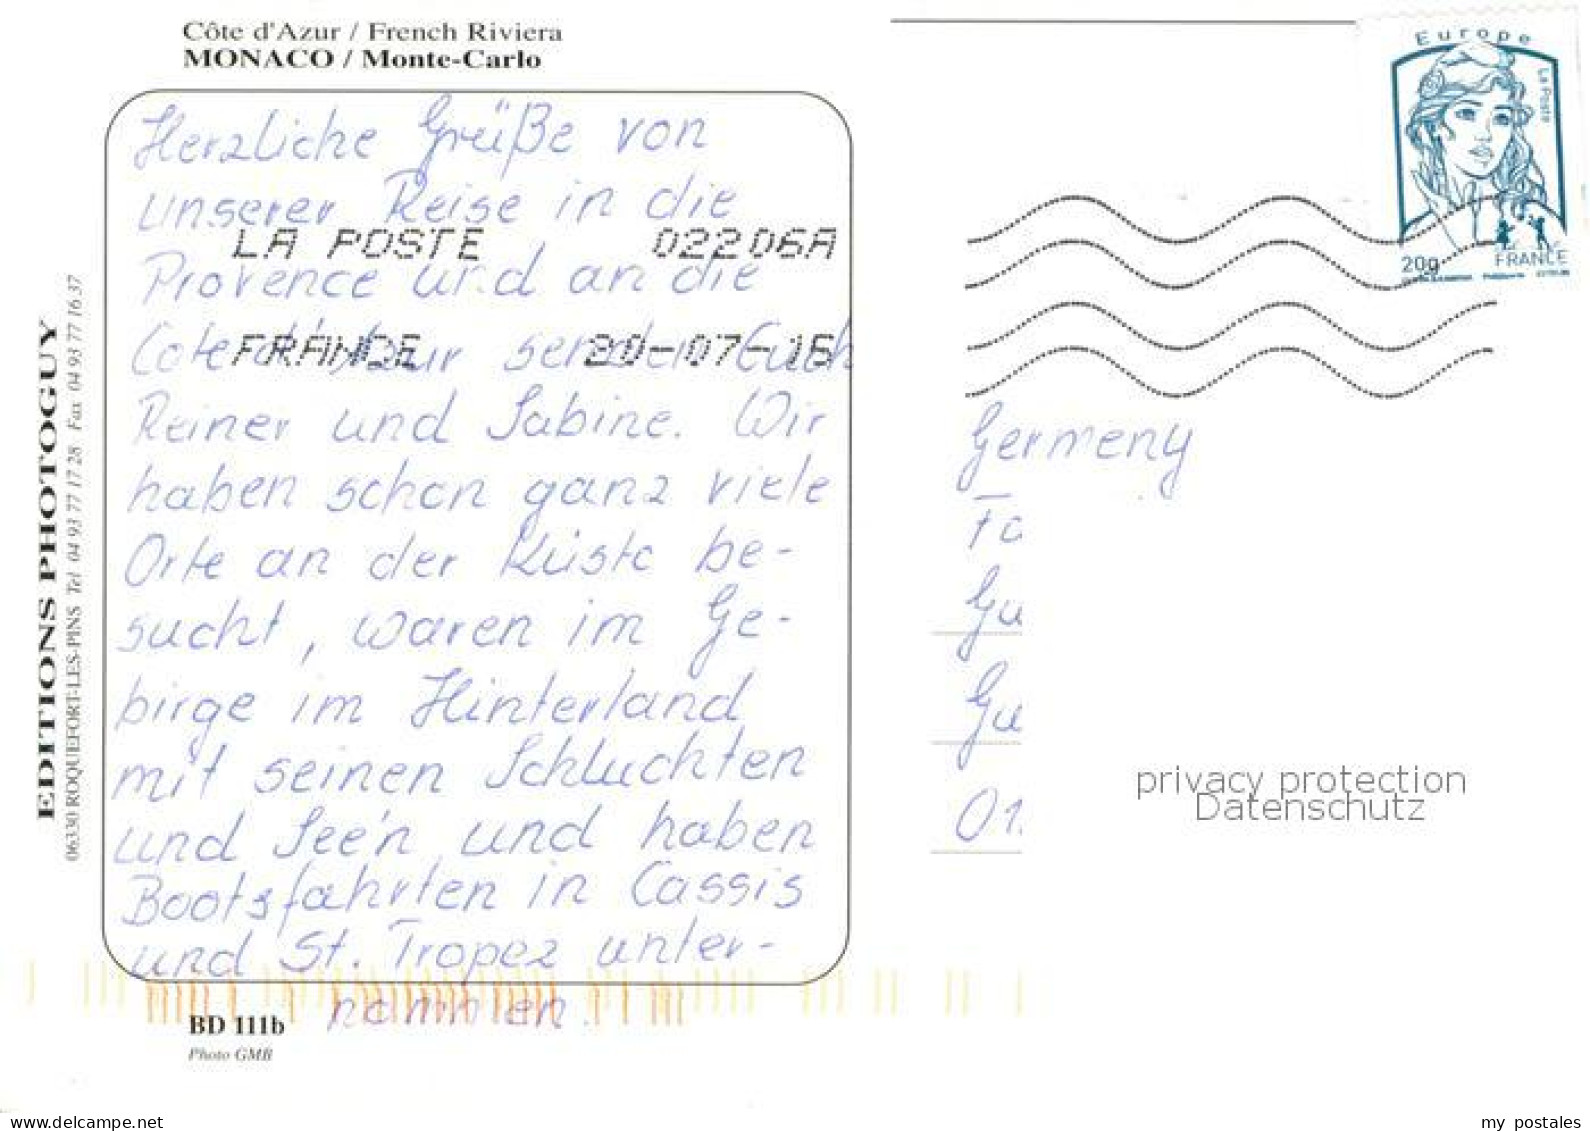 Côte d'Azur / French Riviera
MONACO / Monte-Carlo
Herzliche Grüße von
unserer Reise in die
LA POSTE 02206A
Provence und an die
Cote d'Azur senden Euch
FRANCE 20-07-16
Reiner und Sabine. Wir
haben schon ganz viele
Orte an der Küste be-
sucht, waren im Ge-
birge im Hinterland
mit seinen Schluchten
und See'n und haben
Bootsfahrten in Cassis
und St. Tropez unter-
nommen.
BD 111b
Photo GMB
EDITIONS PHOTOGUY
06330 ROQUEFORT-LES-PINS Tel 04 93 77 17 28 Fax 04 93 77 16 37
Europe
La Poste
20g
FRANCE
Germeny
Fa
Gu
Gu
01.
privacy protection
Datenschutz
delcampe.net
my_postales